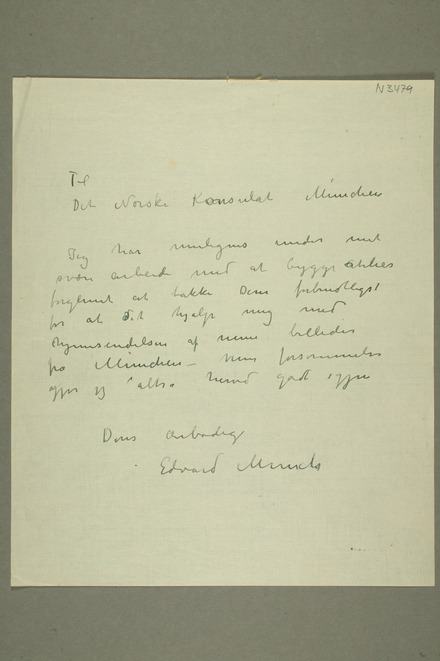 N3479
Til
Det Norske Konsulat München
Jeg har muligens under mit
svære arbeide med at bygge atelier
forglemt at takke Dem forbindtligst
for at De hjalp mig med
hjemsendelsen af mine billeder
fra München – min forsømmelse
gjør jeg altså herved godt igjen
Deres ærbødig
Edvard Munch